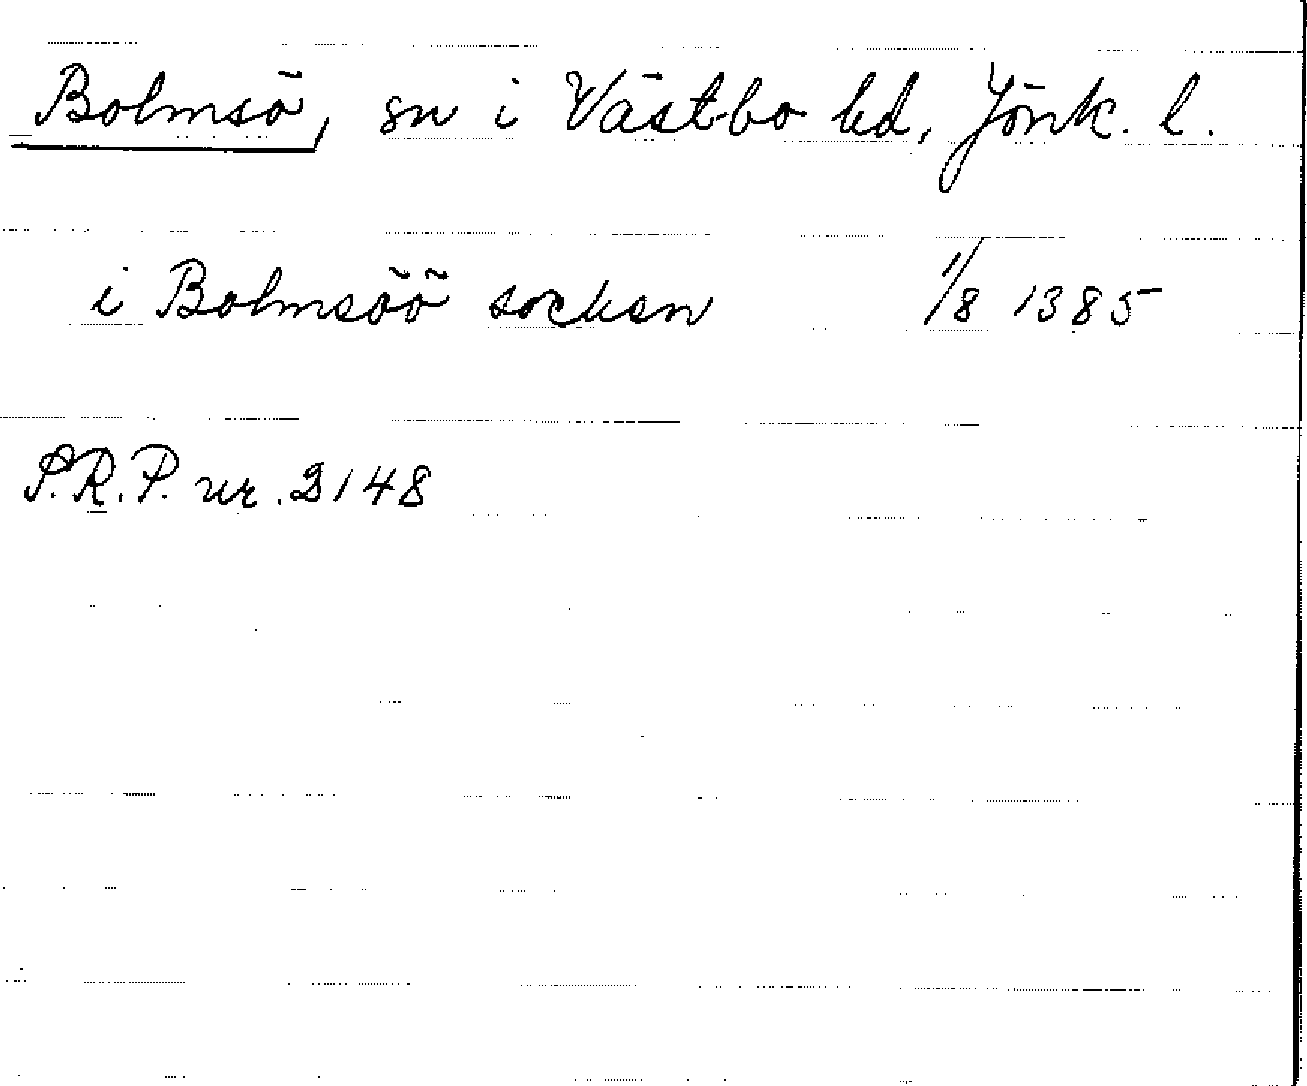 Bolmsö, sn i Västbo hd, Jönk. l.
i Bolmsöö socken 1/8 1385
S.R.P. nr. 2148